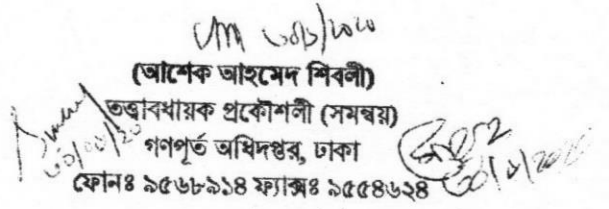 (আশেক আহমেদ শিবলী)
তত্ত্বাবধায়ক প্রকৌশলী (সমন্বয়)
গণপূর্ত অধিদপ্তর, ঢাকা
ফোনঃ ৯৫৬৮৯১৪ ফ্যাক্সঃ ৯৫৫৪৬২৪